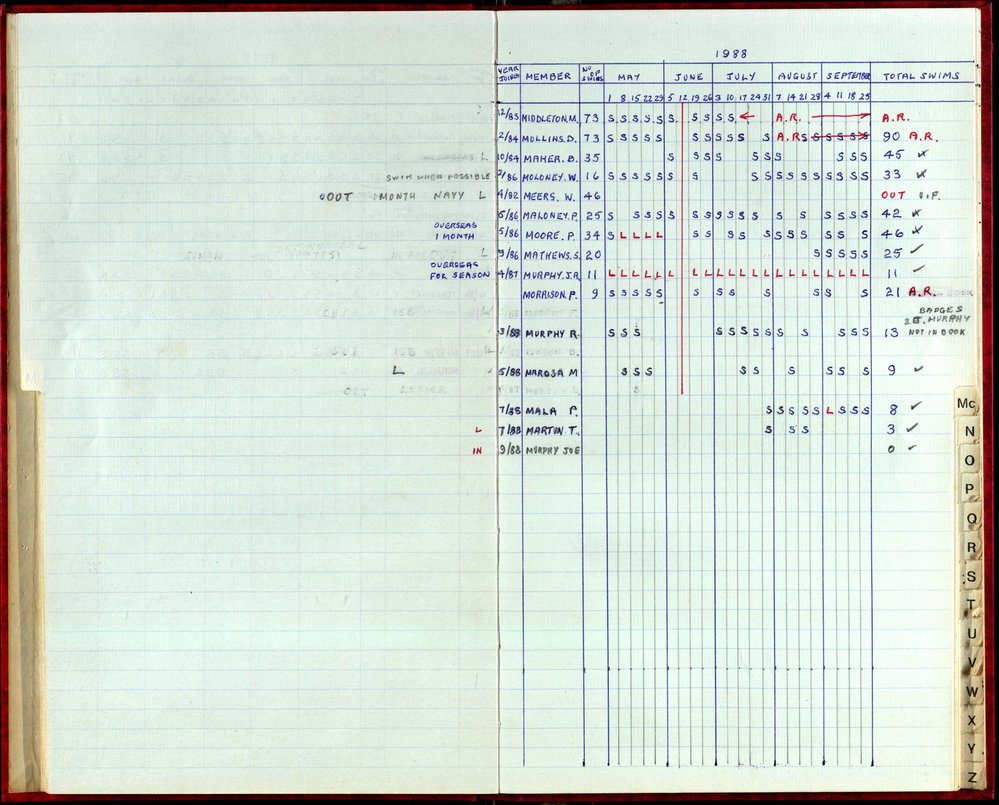 1988
YEAR JOINED MEMBER NO OF SWIMS MAY JUNE JULY AUGUST SEPTEMBER TOTAL SWIMS
1 8 15 22 29 5 12 19 26 3 10 17 24 31 7 14 21 28 4 11 18 25
12/83 MIDDLETON.M. 73 S S S S S S S S S S ← A.R. → A.R.
2/84 MULLINS.D. 73 S S S S S S S S S S S A.R S S S S S S 90 A.R.
L 10/84 MAHER.B. 35 S S S S S S S S S S 45
SWIM WHEN POSSIBLE 2/86 MOLONEY.W. 16 S S S S S S S S S S S S S S S S S 33
OOUT MONTH NAVY L 4/82 MEERS. W. 46 OUT U.F.
5/86 MALONEY.P. 25 S S S S S S S S S S S S S S S S S 42
OVERSEAS 1 MONTH 5/86 MOORE.P. 34 S L L L L S S S S S S S S S S S 46
L 9/86 MATHEWS.S. 20 S S S S S 25
OVERSEAS FOR SEASON 4/87 MURPHY.J.A. 11 L L L L L L L L L L L L L L L L L L L L L 11
MORRISON.P. 9 S S S S S S S S S S S S 21 A.R.
BADGES
2 J. MURPHY
3/88 MURPHY R. S S S S S S S S S S S S S 13 NOT IN BOOK
L 5/88 MAROSA M S S S S S S S S S 9
S
7/88 MALA P. S S S S S L S S S 8
L 7/88 MARTUN T. S S S 3
IN 9/88 MURPHY JOE 0
M
Mc
N
O
P
Q
R
S
T
U
V
W
X
Y
Z